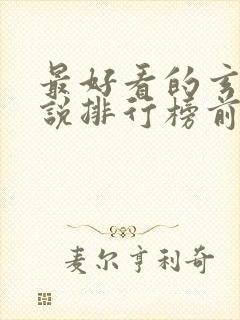 最好看的玄
說排行榜前
麦尔亨利奇